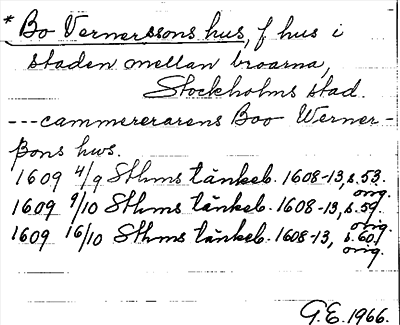 * Bo Vernerssons hus, f hus i
staden mellan broarna,
Stockholms stad.
---cammererarens Boo Werner-
ßons hws.
1609 4/9 Sthms tänkeb. 1608-13, s.53.
orig.
1609 9/10 Sthms tänkeb. 1608-13, s.59.
orig.
1609 16/10 Sthms tänkeb. 1608-13, s.60.
orig.
G.E. 1966.